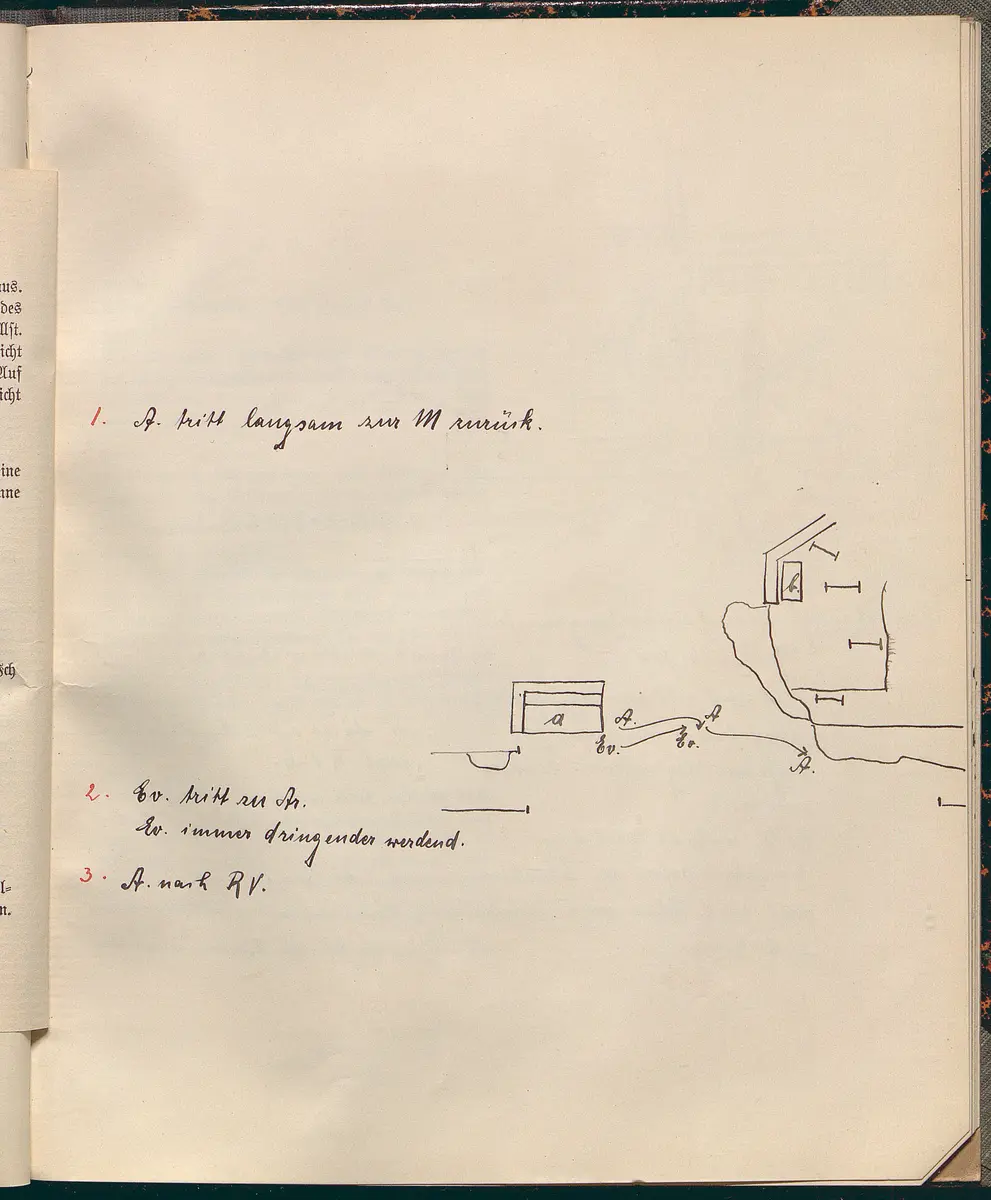 us.
des
llst.
icht
Auf
icht
1. A. tritt langsam zur M zurück.
ine
nne
b.
sch
a
A.
A
Ev.
Ev.
A.
2. Ev. tritt zu Ar.
Ev. immer dringender werdend.
3. A. nach R V.
l=
n.